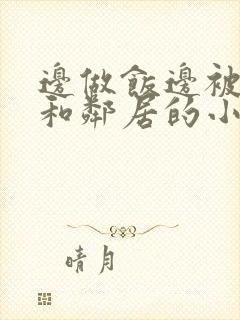 邊做飯邊被
和鄰居的小
晴月